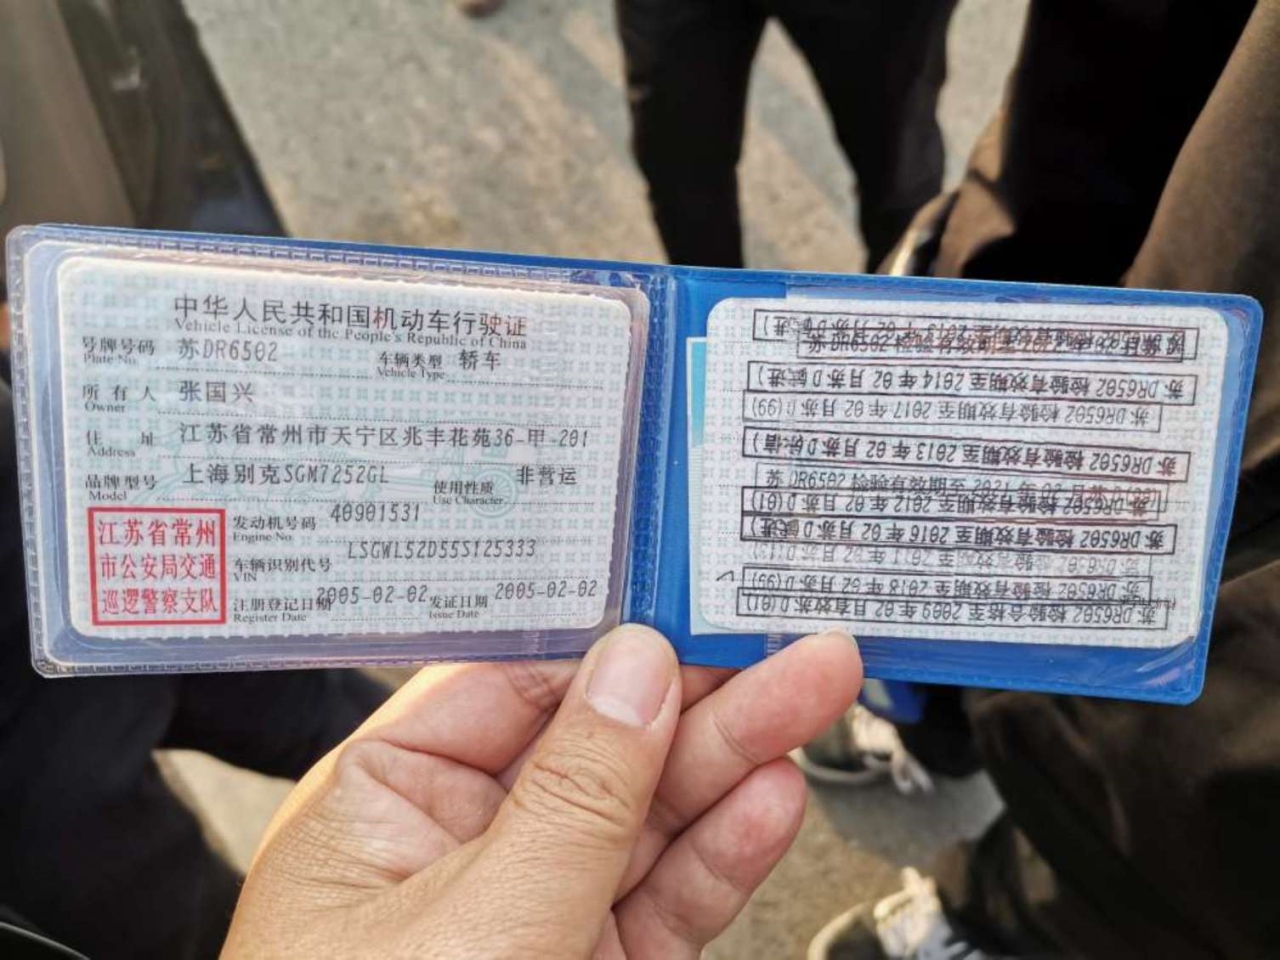 中华人民共和国机动车行驶证
Vehicle License of the People's Republic of China
号牌号码 苏DR6502 车辆类型 轿车
Plate No. Vehicle Type
所有人 张国兴
Owner
住址 江苏省常州市天宁区兆丰花苑36-甲-201
Address
品牌型号 上海别克SGM7252GL 使用性质 非营运
Model Use Character
江苏省常州
市公安局交通
巡逻警察支队
发动机号码 40901531
Engine No.
车辆识别代号 LSGWL52D55S125333
VIN
注册登记日期 2005-02-02 发证日期 2005-02-02
Register Date Issue Date
苏DR6502 检验合格至2009年02月有效苏D(01)
苏DR6502 检验有效期至2018年02月苏D(99)
苏DR6502 检验有效期至2016年02月苏D
检验有效期至2012年02月苏D(01)
苏DR6502 检验有效期至
苏DR6502 检验有效期至2013年02月苏D
苏DR6502 检验有效期至2017年02月苏D(99)
苏DR6502 检验有效期至2014年02月苏D